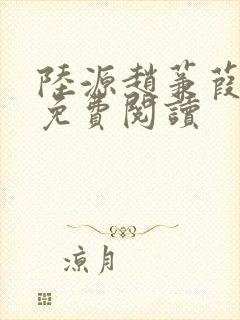 陸源趙蒹葭
免費閱讀
涼月